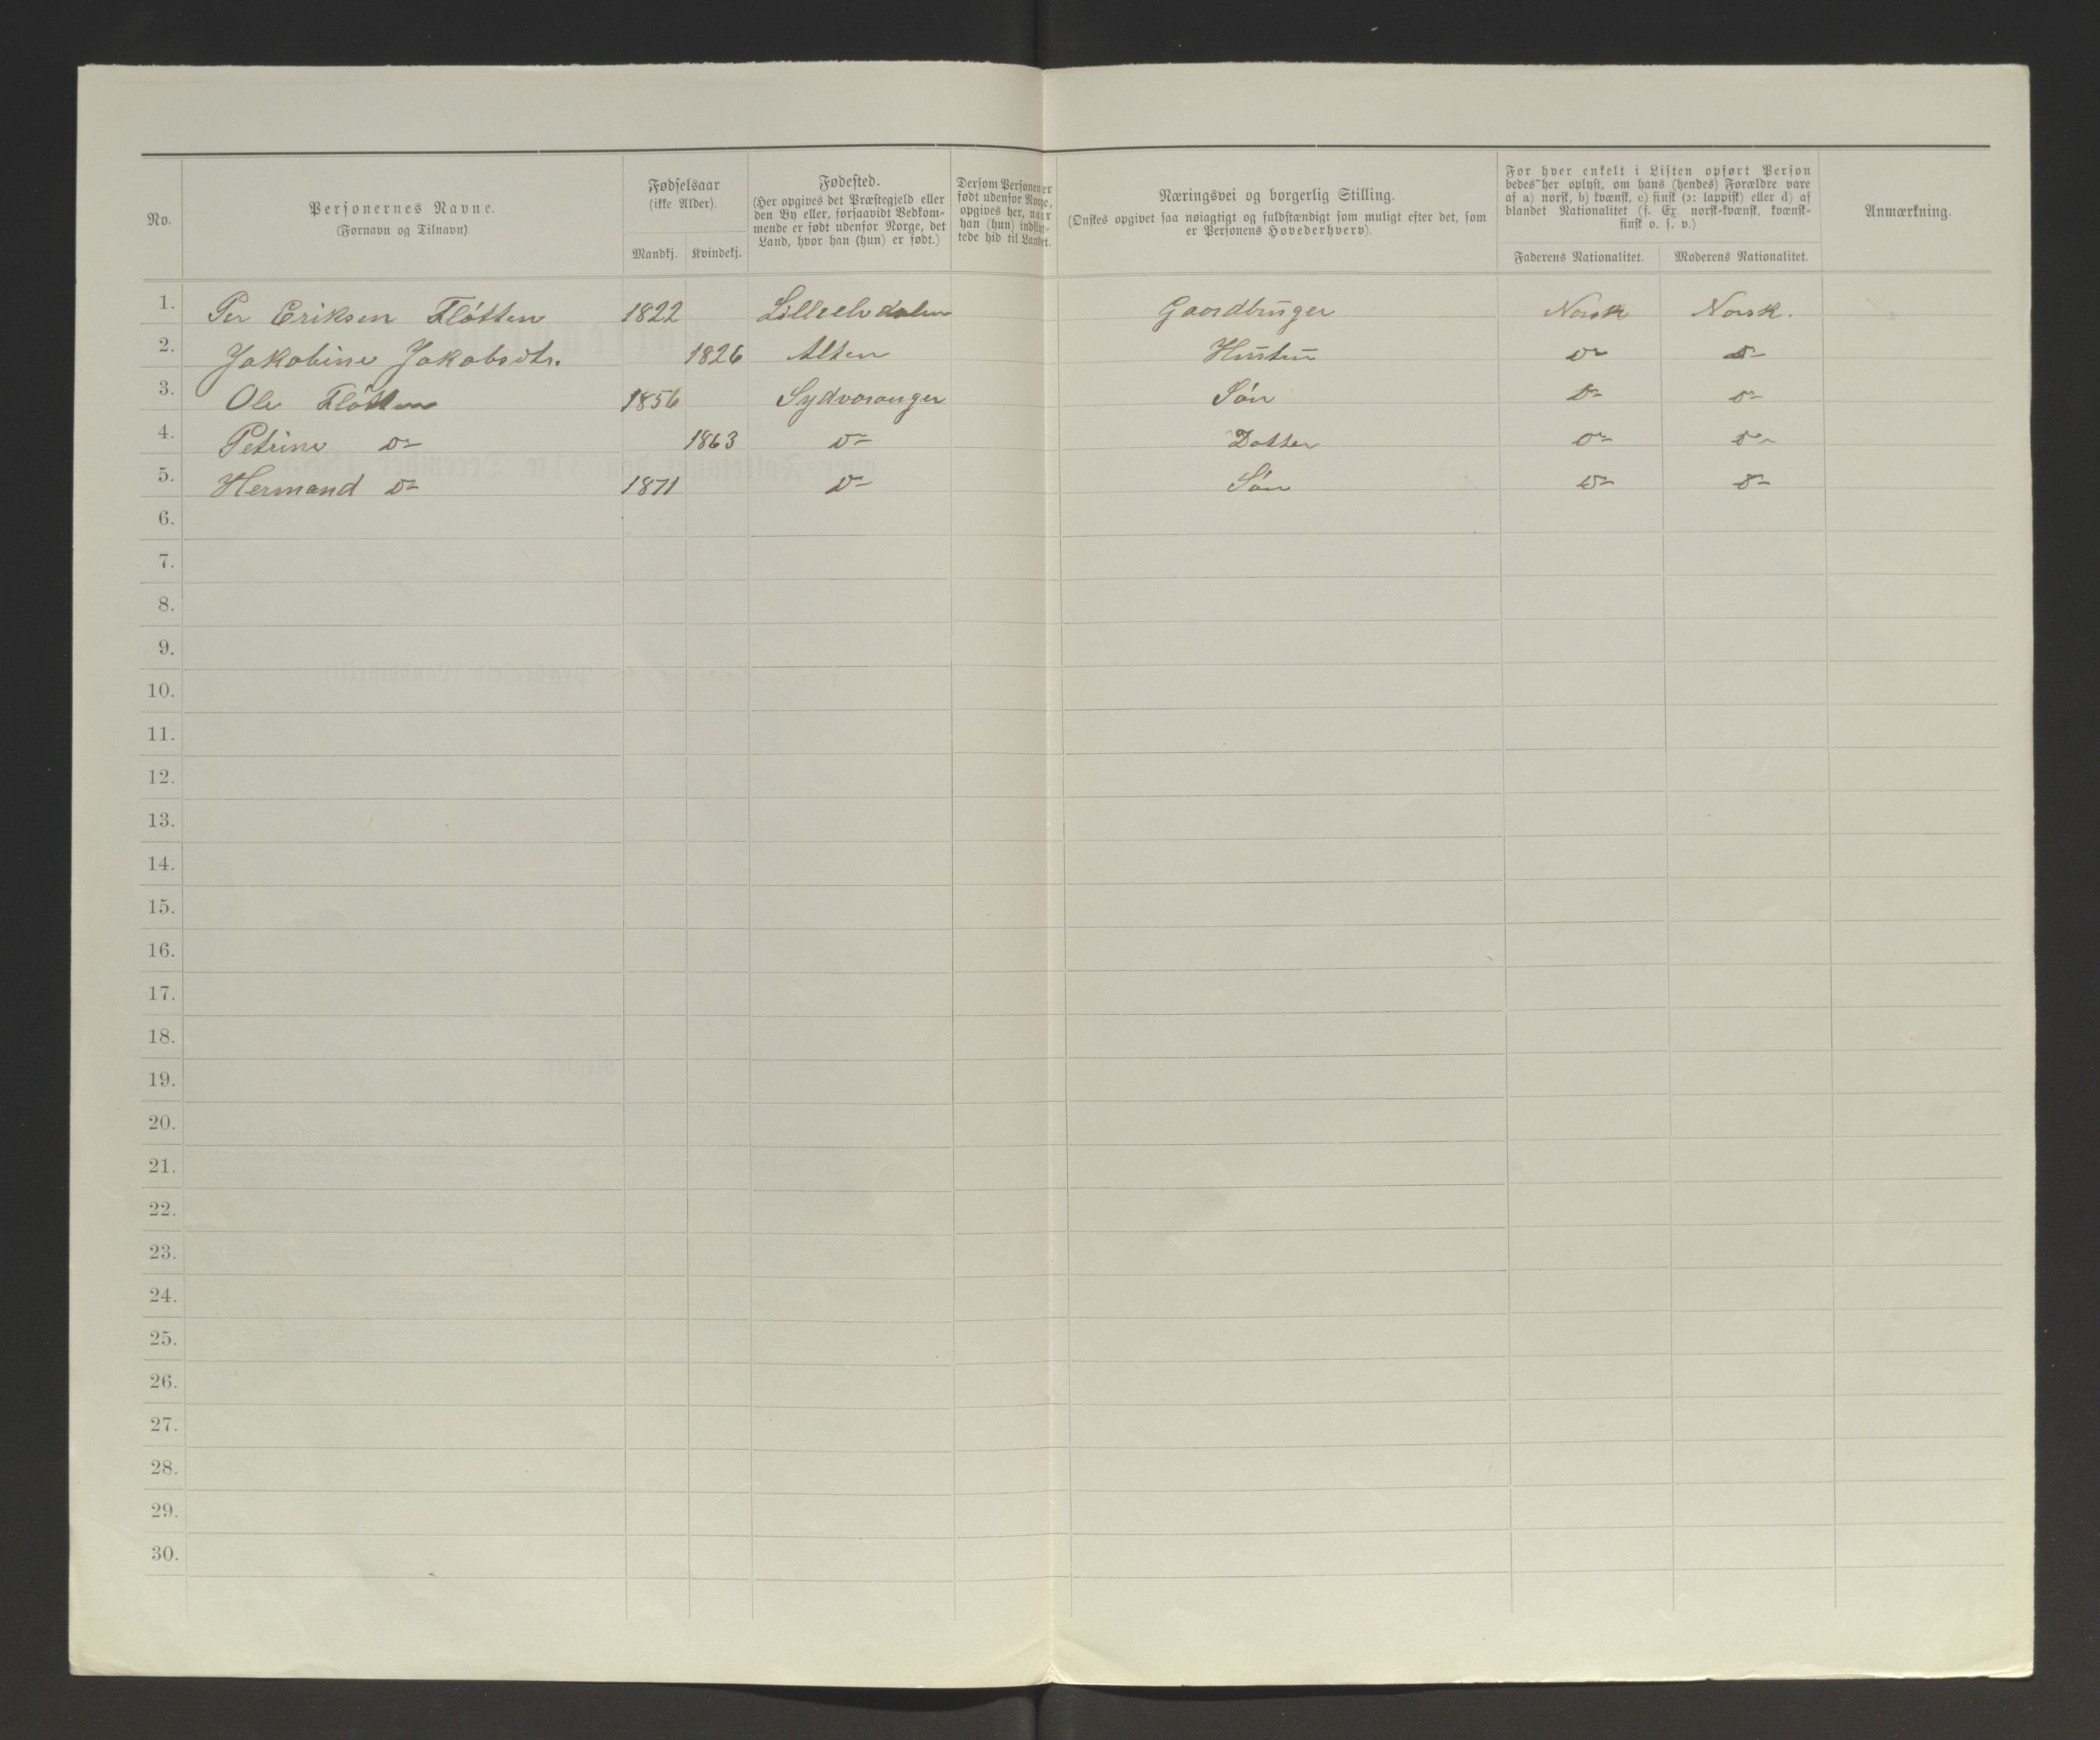 No.
Personernes Navne.
(Fornavn og Tilnavn)
Fødselsaar
(ikke Alder).
Mandkj. Kvindekj.
Fødested.
(Her opgives det Præstegjeld eller
den By eller, forsaavidt Vedkom-
mende er født udenfor Norge, det
Land, hvor han (hun) er født.)
Dersom Personen er
født udenfor Norge,
opgives her, naar
han (hun) indflyt-
tede hid til Landet.
Næringsvei og borgerlig Stilling.
(Ønskes opgivet saa nøiagtigt og fuldstændigt som muligt efter det, som
er Personens Hovederhverv).
For hver enkelt i Listen opført Person
bedes her oplyst, om hans (hendes) Forældre vare
af a) norsk, b) kvænsk, c) finsk (ɔ: lappisk) eller d) af
blandet Nationalitet (f. Ex. norsk-kvænsk, kvænsk-
finsk o. s. v.)
Faderens Nationalitet. Moderens Nationalitet.
Anmærkning.
1. Per Eriksen Fløtten 1822 Lilleelvdalen Gaardbruger Norsk Norsk.
2. Jakobine Jakobsdtr. 1826 Alten Hustru Do Do
3. Ole Fløtten 1856 Sydvaranger Søn Do Do
4. Petrine Do 1863 Do Datter Do Do
5. Hermand Do 1871 Do Søn Do Do
6.
7.
8.
9.
10.
11.
12.
13.
14.
15.
16.
17.
18.
19.
20.
21.
22.
23.
24.
25.
26.
27.
28.
29.
30.